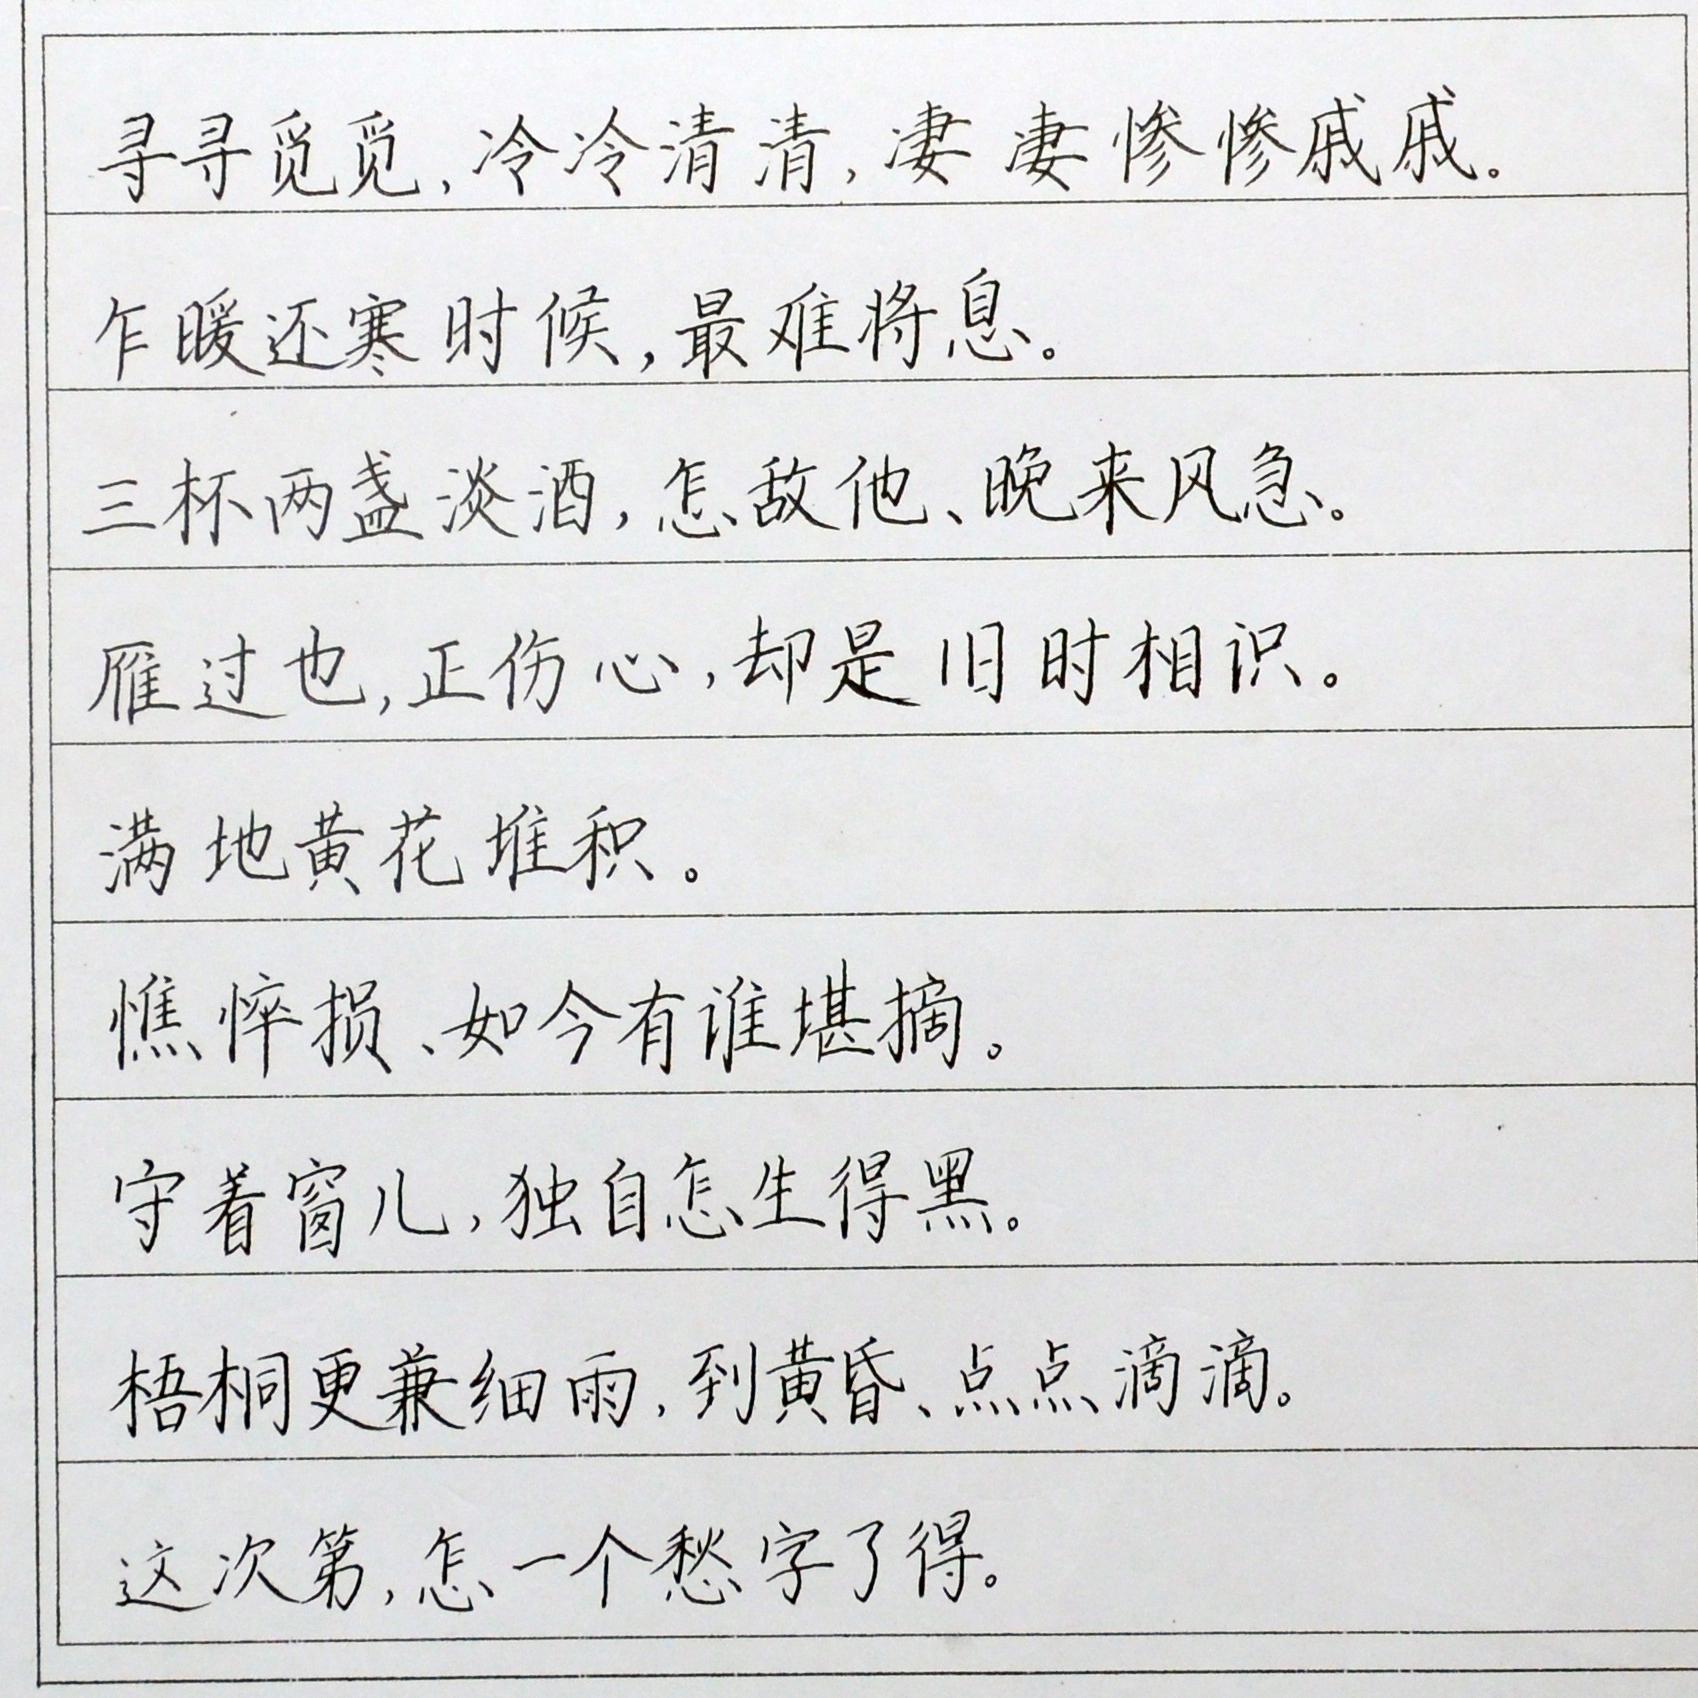 寻寻觅觅，冷冷清清，凄凄惨惨戚戚。
乍暖还寒时候，最难将息。
三杯两盏淡酒，怎敌他、晚来风急。
雁过也，正伤心，却是旧时相识。
满地黄花堆积。
憔悴损、如今有谁堪摘。
守着窗儿，独自怎生得黑。
梧桐更兼细雨，到黄昏、点点滴滴。
这次第，怎一个愁字了得。